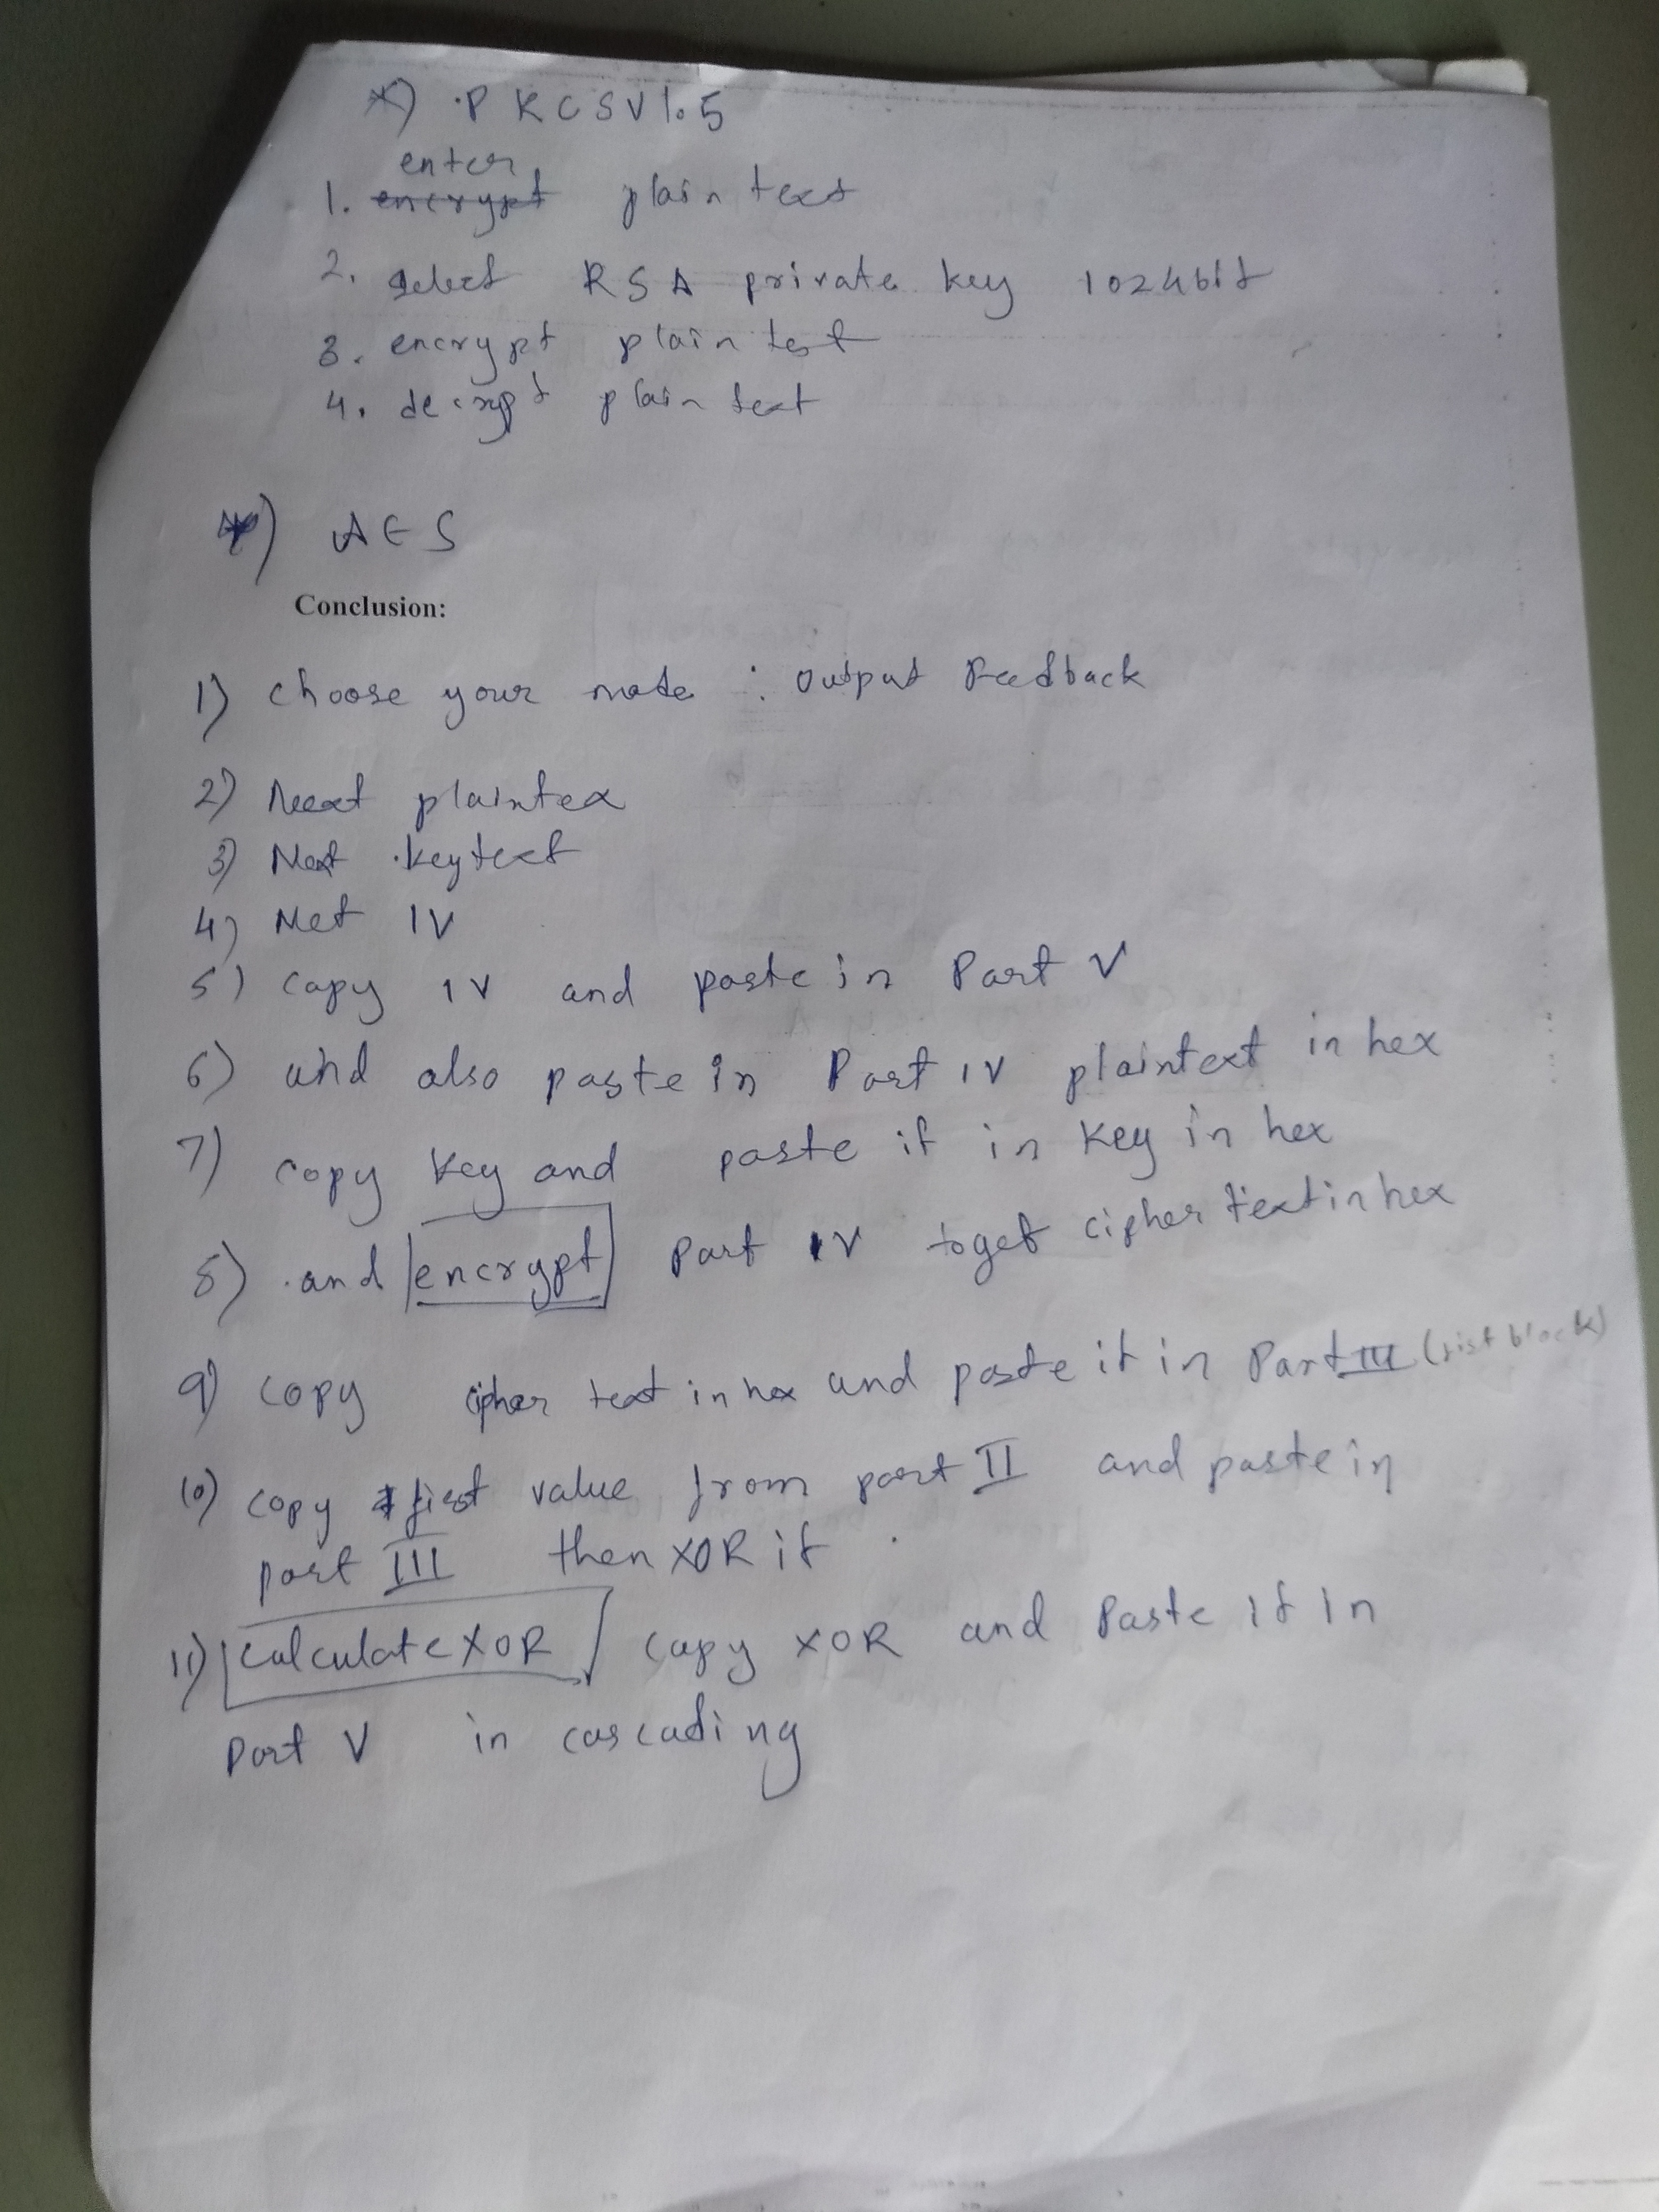 *) PKCSV1.5
enter
1. encrypt plain text
2. select RSA private key 1024bit
3. encrypt plain text
4. decrypt plain text
*) AES
Conclusion:
1) choose your mode : Output Feedback
2) Next plaintex
3) Next keytext
4) Net IV
5) Copy IV and paste in Part V
6) and also paste in Part IV plaintext in hex
7) copy key and paste it in key in hex
8) and encrypt Part IV to get cipher text in hex
9) copy cipher text in hex and paste it in Part III (fist block)
10) copy first value from part II and paste in
part III then XOR it
11) calculate XOR copy XOR and Paste it In
Part V in cascading